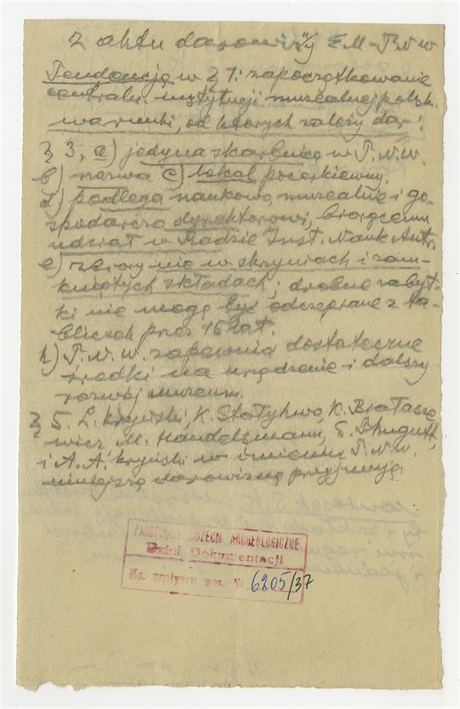 Z aktu darowizny E M - T N W
Tendencja w § 1: zapoczątkowanie
centraln. instytucji muzealnej polsk.
warunki, od których zależy dar:
§ 3, a) jedyna skarbnica w T.N.W.
b) nazwa c) lokal pocerkiewny.
d) podlega naukowo, muzealnie i go-
spodarczo dyrektorowi, biorącemu
udział w Radzie Inst. Nauk Antr.
e) zbiory nie w skrzyniach i zam-
kniętych składach; drobne zabyt-
ki nie mogą być odczepiane z ta-
bliczek przez 15 lat.
h) T.N.W. zapewnia dostateczne
środki na urządzenie i dalszy
rozwój muzeum.
§ 5. L. Krzywicki, K. Stołyhwo, K.
wicz M. Handelsmann, S. Thugutt,
i A. A. Kryński w imieniu T.N.W.
niniejszą darowiznę przyjmują.
PAŃSTWOWE MUZEUM ARCHEOLOGICZNE
Dział Dokumentacji
Ks. wpływu poz. Nr 6205/37